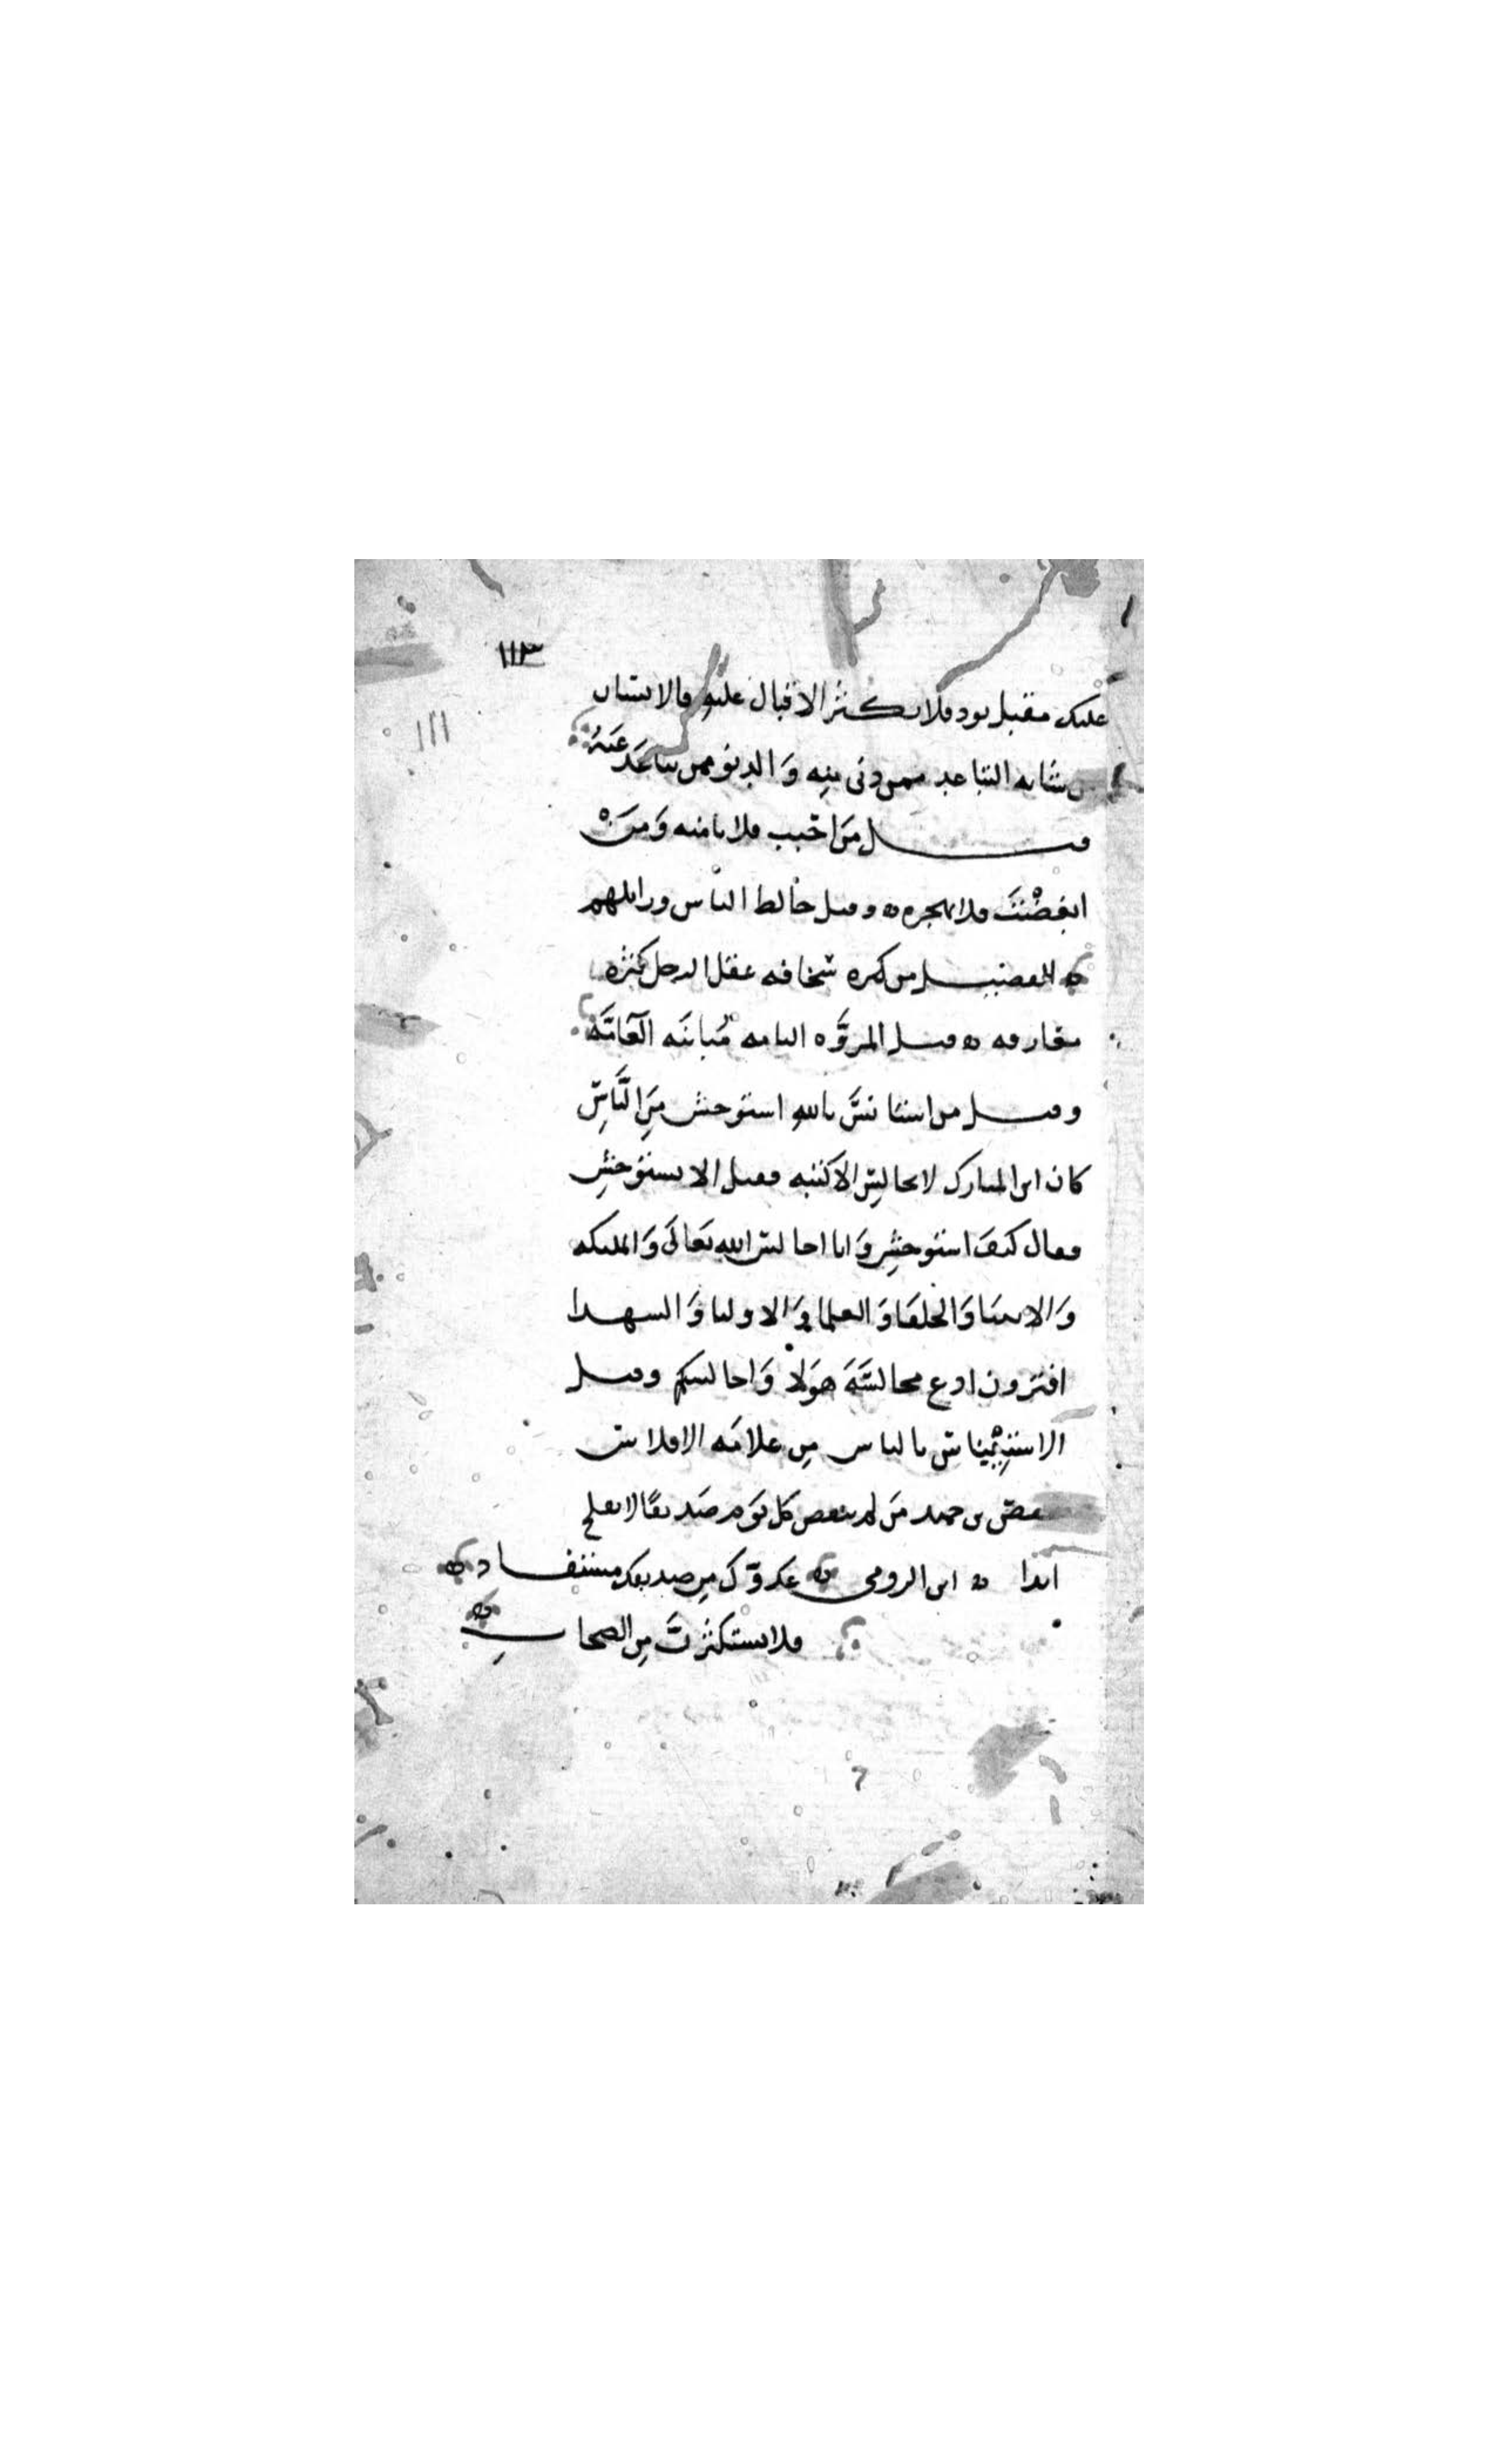 ١١٣
عليك مقبل بود فلا تكثر الاقبال عليه فالانسان
من شانه التباعد ممن دنى منه وَالدنو ممن تباعَدَ عَنهُ
١١١
قيل مَن احبب فلا تامنه وَمَنْ
ابغَضْتَ فلا تهجره ه وقيل خالط الناس وزايلهم
ه الفضيل من كثره سخافه عقل الرجل كثره
معارفه ه قيل المروَّه التامه مُباينَه العَامَّه
وقيل من استانسَ بالله استوحش مِنَ النَّاسِ
كان ابن المبارك لا يجالِس الا كتبه فقيل الا تستوحش
فقال كيفَ استوحش وَانا اجالس الله تعَالَى وَالمليكه
وَالانبيا وَالخلفا وَالعلما وَالاوليا وَالشهدا
افترون ادع مجالسَةَ هَولا وَاجالسكم وقيل
الاستِيْناس بالناس مِن علامَه الافلاس
بن حميد مَن لم ينقص كل يَوم صَديقًا لا يفلح
ابدا ه ابن الرومي ه عدوّك مِن صديقك مستفاد ه
فلا تستكثرنَّ مِن الصحابِ ه